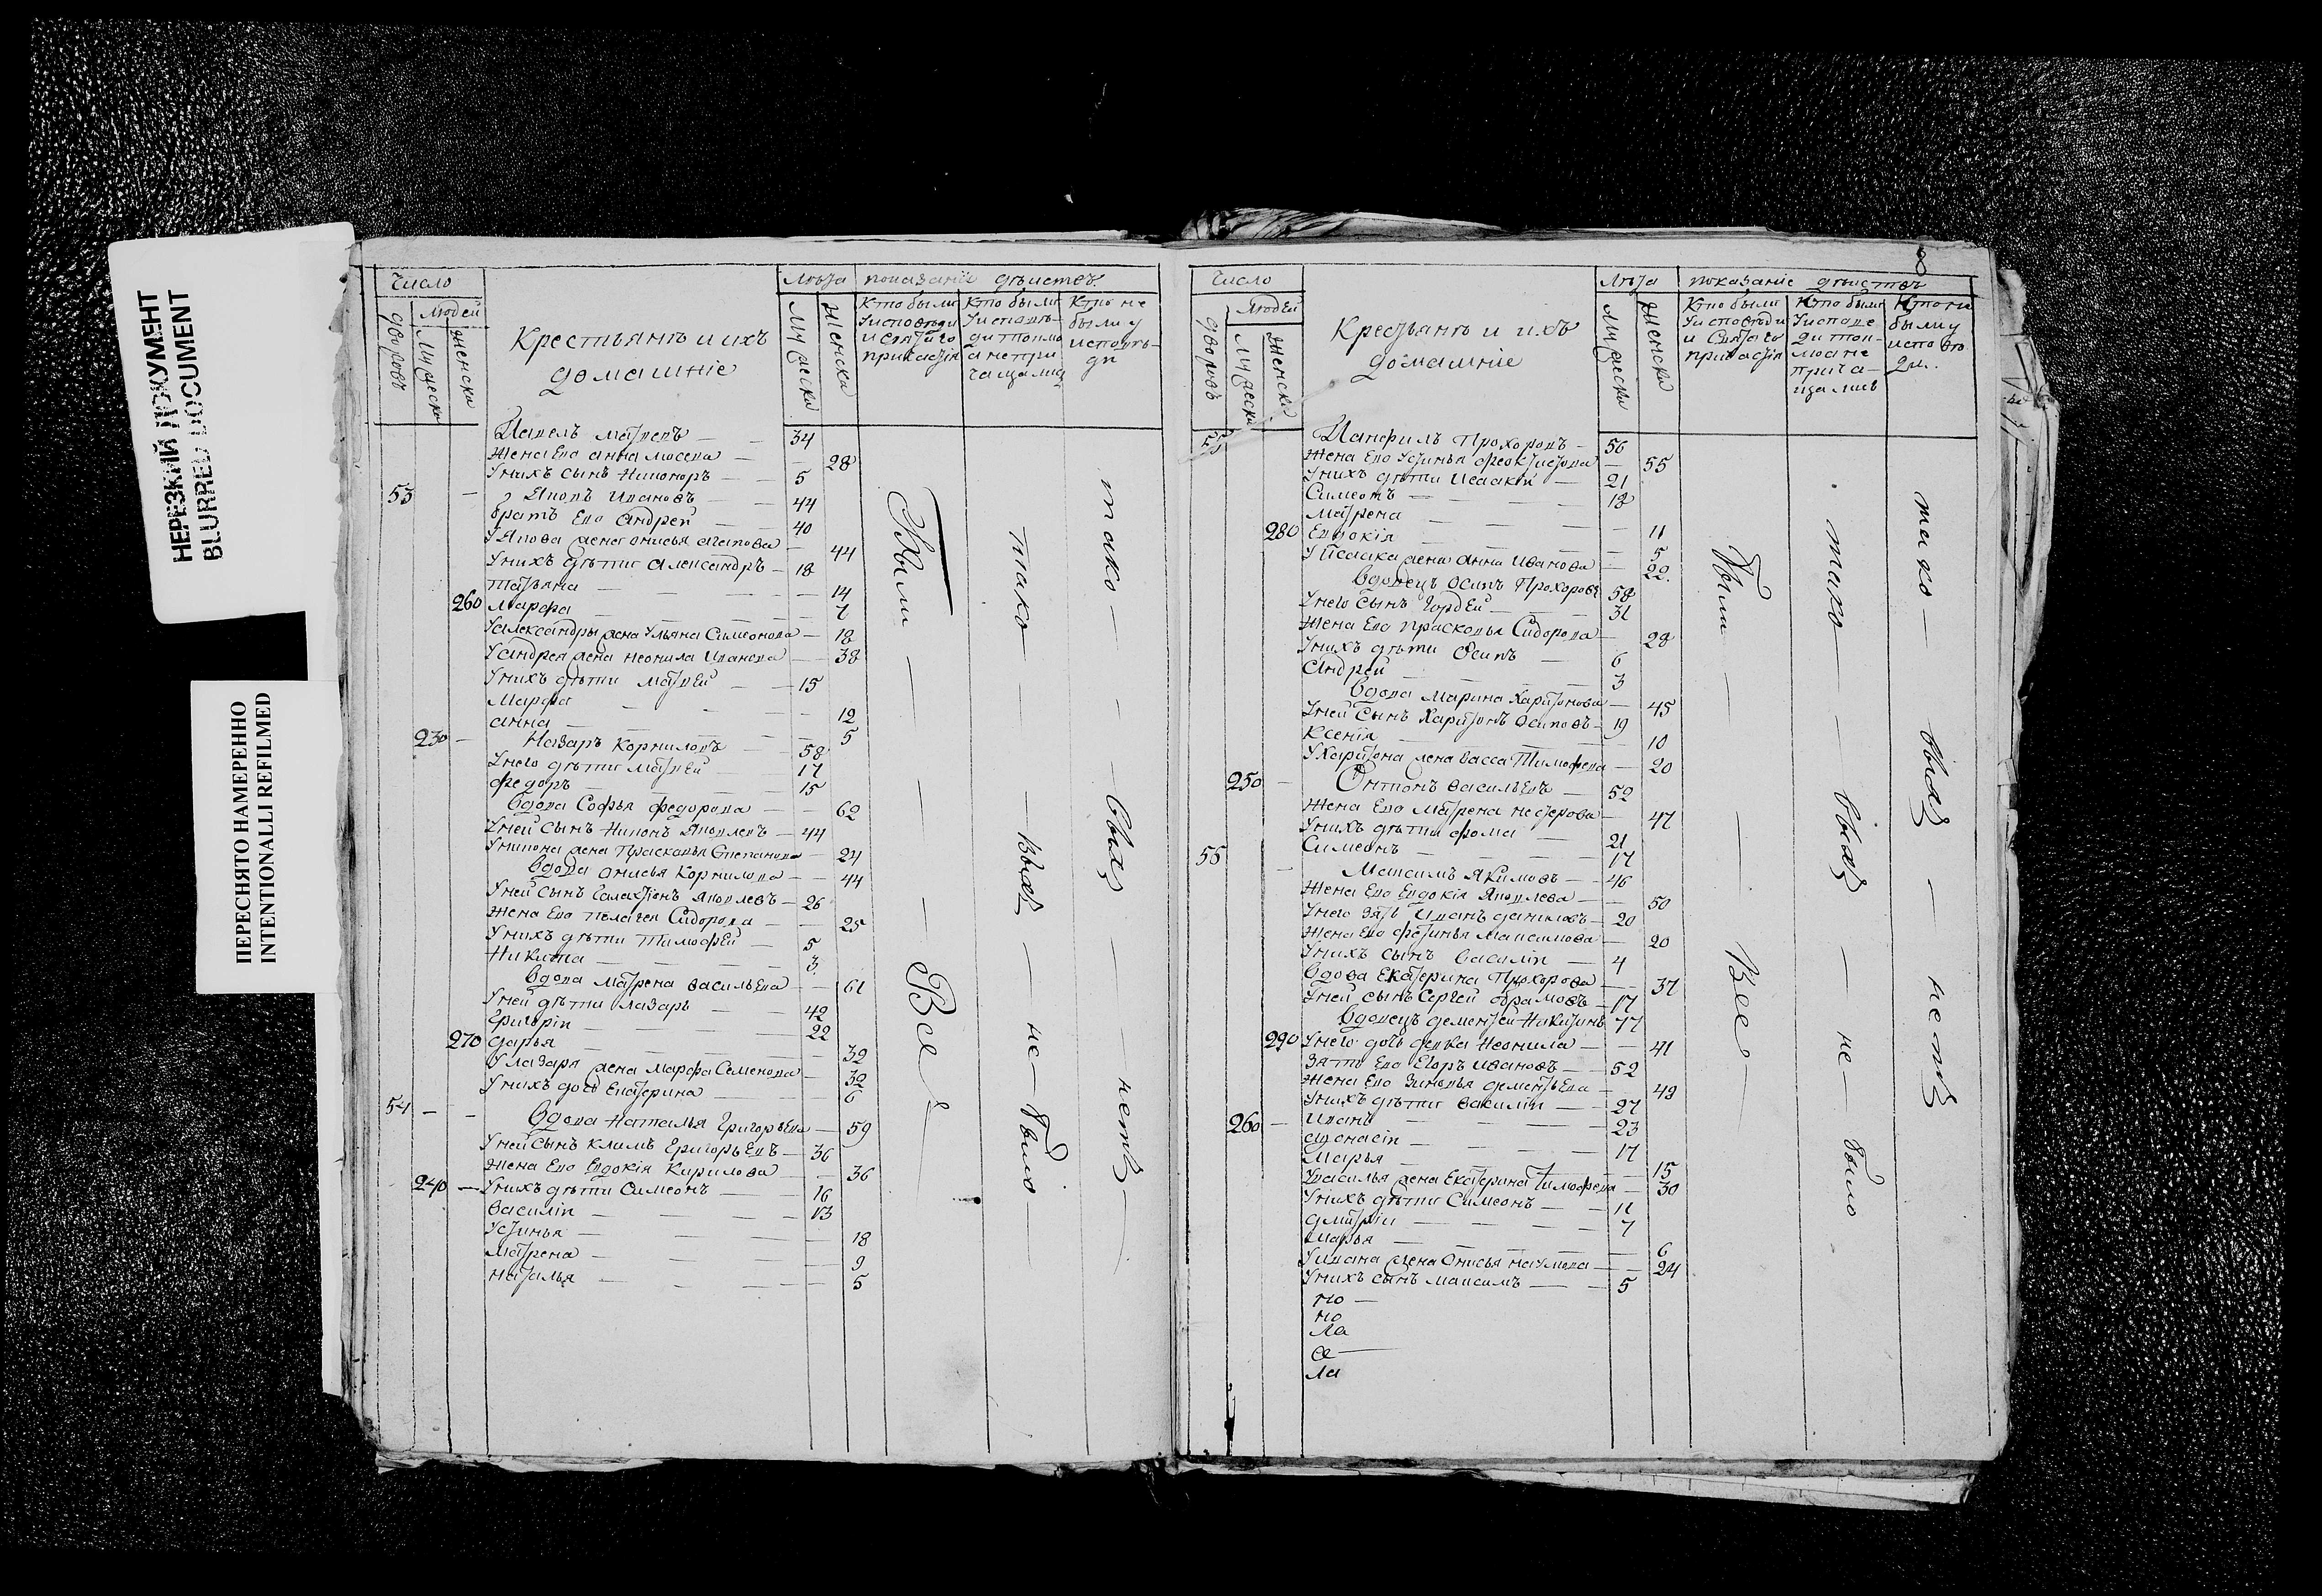 НЕРЕЗКИЙ ДОКУМЕНТ
BLURRED DOCUMENT
ПЕРЕСНЯТО НАМЕРЕННО
INTENTIONALLI REFILMED
число
людей
дворовъ
мужеска
женска
Крестьянъ и ихъ
домашніе
Люта показаніе дѣиствъ
мужеска
женска
Кто были
Уисповѣди
и святаго
причастія
Кто были
Уисповѣ-
ди токмо
а непри
чащались
Кто не
были у
исповѣ-
ди
Павелъ матвеевъ — 34
жена Ево анна — 28
Унихъ сынъ Никоноръ — 5
53 — Яковъ Ивановъ — 44
братъ Ево андрей — 40
Уякова жена онисья агапова — 44
Унихъ дѣти александръ — 18
татьяна — 14
260 марфа — 7
Уалександры жена Ульяна Симеонова — 18
Уандрея жена неонила Иванова — 38
Унихъ дѣти матвей — 15
марфа — 12
анна — 5
230 — Назаръ Корниловъ — 58
Унего дѣти матвей — 17
федоръ — 15
Вдова Софья федорова — 62
Уней сынъ Никонъ Яковлевъ — 44
Уникона жена Прасковья Степанова — 24
Вдова онисья Корнилова — 44
Уней сынъ Галактіонъ Яковлевъ — 26
жена Ево пелагея Сидорова — 25
Унихъ дѣти тимофей — 5
Никита — 3
Вдова матрена васильева — 61
Уней дѣти лазарь — 42
Григоріи — 22
270 дарья — 32
Улазаря жена марфа Семенова — 32
Унихъ дочь Екатерина — 6
54 — Вдова наталья Григорьева — 59
Уней сынъ климъ Григорьевъ — 36
жена Ево Евдокія Кирилова — 36
240 — Унихъ дѣти Симеонъ — 16
василіи — 13
Устинья — 18
матрена — 9
наталья — 5
Были — — — Все
тако — — выхъ — не — было —
тако — — выхъ — нетъ —
8
число
людей
дворовъ
мужеска
женска
Крестьянъ и ихъ
домашніе
Люта показаніе дѣиствъ
мужеска
женска
Кто были
Уисповѣди
и Святаго
причастія
Кто были
Уисповѣ
ди ток-
мо а не
прича-
щались
Кто не
были у
исповѣ
ди.
55 Панфилъ Прохоровъ — 56
жена Ево Устинья феоктистова — 55
Унихъ дѣти Исаакий — 21
Симеонъ — 18
матрена — 11
280 Евдокія — 5
Уисаака жена анна Иванова — 22
Вдовецъ осипъ Прохоровъ 58
Унего сынъ гордей — 31
жена Ево прасковья Сидорова — 28
Унихъ дѣти Осипъ — 6
андрей — 3
Вдова марина харитонова — 45
Уней сынъ харитонъ осиповъ — 19
Ксенія — 10
Ухаритона жена васса Тимофеева — 20
250 — Антонъ васильевъ — 52
жена Ево матрена нестерова — 47
Унихъ дѣти фома — 21
Симеонъ — 17
56 — Максимъ Якимовъ — 46
жена Ево Евдокія Яковлева — 50
Унего зять Иванъ даниловъ — 20
жена Ево фетинья максимова — 20
Унихъ сынъ василіи — 4
Вдова Екатерина Прохорова — 37
Уней сынъ Сергей абрамовъ — 17
Вдовецъ дементей Никитинъ 77
290 Унего дочь девка неонила — 41
зять Ево Егоръ ивановъ — 52
жена Ево зиновья дементьева — 49
Унихъ дѣти василіи — 27
260 — Иванъ — 23
афонасіи — 17
марья — 15
Увасилья жена Екатерина тимофеева — 30
Унихъ дѣти Симеонъ — 11
дмитріи — 7
марья — 6
Уивана жена онисья наумова — 24
Унихъ сынъ максимъ — 5
но —
но
ла
се —
ла
Были — — Все
тако — — выхъ — не — было
тако — выхъ — нетъ